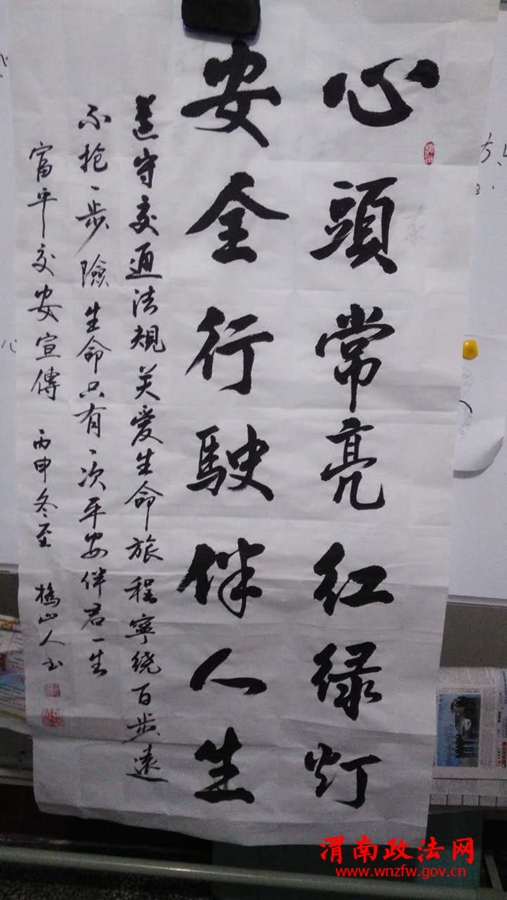 心頭常亮红绿灯
安全行駛伴人生
遵守交通法規关爱生命旅程寧绕百步遠
不抢一步險生命只有一次平安伴君一生
富平交安宣傳 丙申冬至 橋山人书
渭南政法网
www.wnzfw.gov.cn